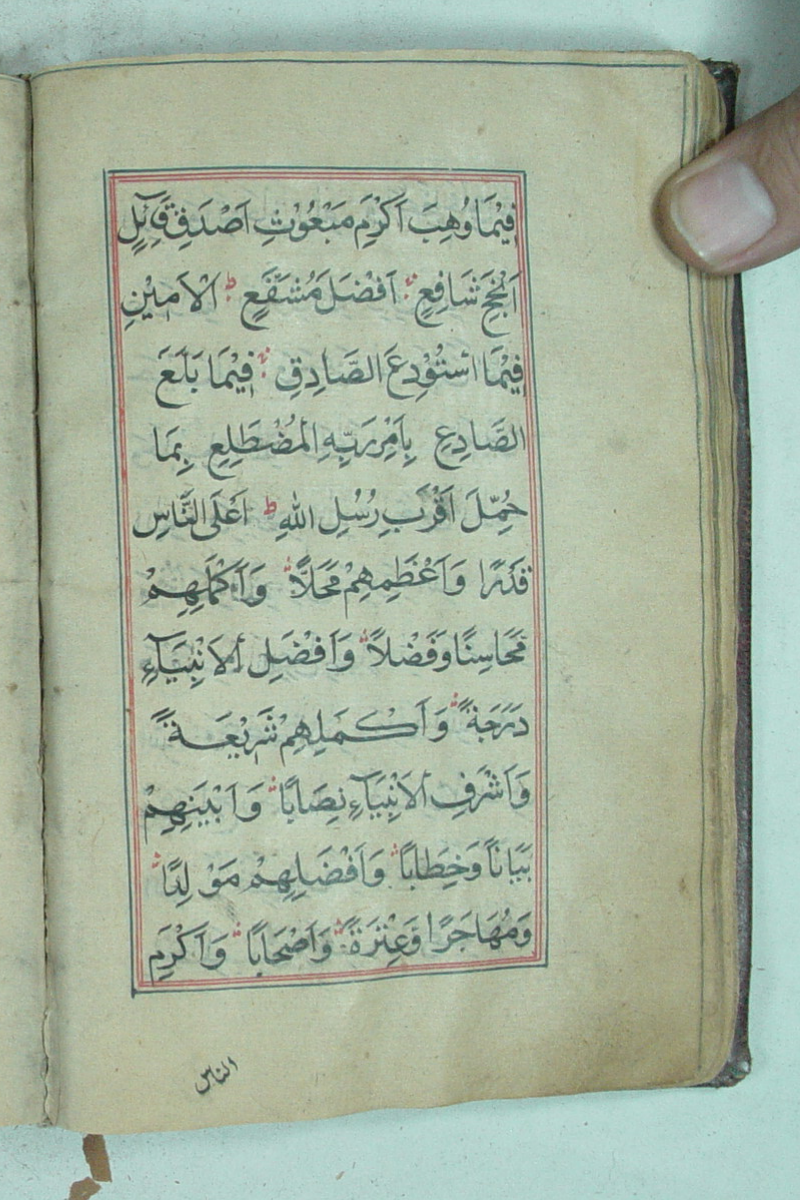 فِيْمَا وُهِبَ اَكْرَمِ مَبْعُوْثٍ اَصْدَقِ قَآئِلٍ
اَنْجَحِ شَافِعٍ اَفْضَلِ مُشَفَّعٍ ط الْاَمِيْنِ
فِيْمَا اسْتُوْدِعَ الصَّادِقِ فِيْمَا بَلَّغَ
الصَّادِعِ بِاَمْرِ رَبِّهِ الْمُضْطَلِعِ بِمَا
حُمِّلَ اَقْرَبِ رُسُلِ اللهِ ط اَعْلَى النَّاسِ
قَدَرًا وَاَعْظَمِهِمْ مَحَلاًّ وَاَكْمَلِهِمْ
مَحَاسِنًا وَفَضْلاً وَاَفْضَلِ الْاَنْبِيَآءِ
دَرَجَةً وَاَكْمَلِهِمْ شَرِيْعَةً
وَاَشْرَفِ الْاَنْبِيَآءِ نِصَابًا وَاَبْيَنِهِمْ
بَيَانًا وَخِطَابًا وَاَفْضَلِهِمْ مَوْلِدًا
وَمُهَاجَرًا وَّعِتْرَةً وَاَصْحَابًا وَاَكْرَمِ
الناس